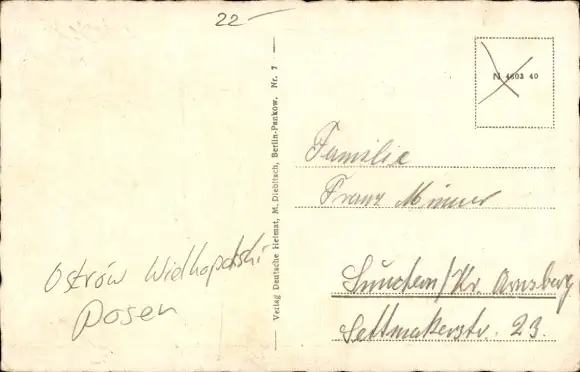 22 —
N 4603 40
Verlag Deutsche Heimat, M. Diebitsch, Berlin-Pankow. Nr. 7
Familie
Franz
Ostrów Wielkopolski
Posen
Sundern/Kr. Arnsberg
Settmakerstr. 23.